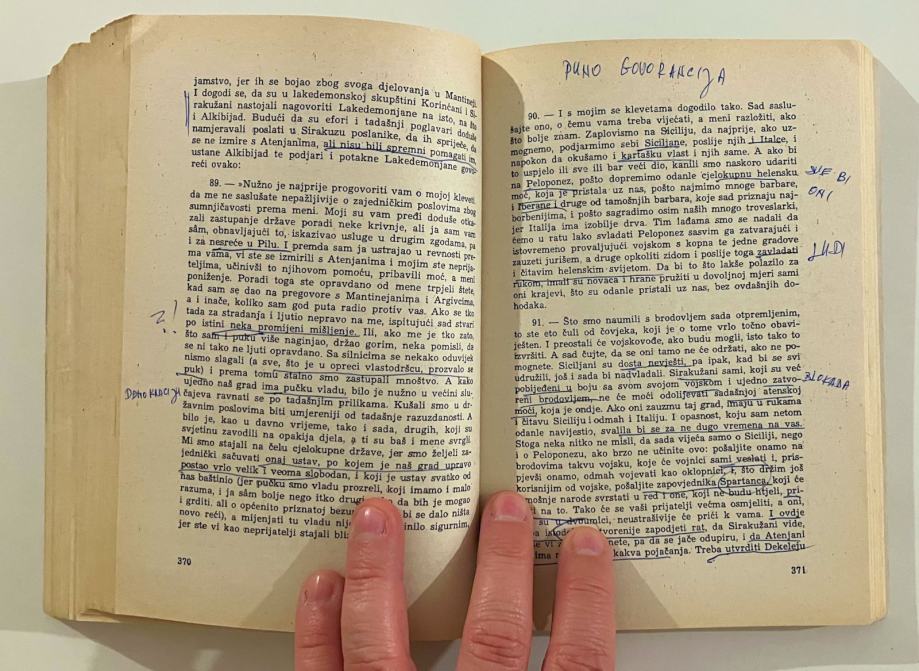 jamstvo, jer ih se bojao zbog svoga djelovanja u Mantineji.
I dogodi se, da su u lakedemonskoj skupštini Korinćani i Si-
rakužani nastojali nagovoriti Lakedemonjane na isto, na što
i Alkibijad. Budući da su efori i tadašnji poglavari doduše
namjeravali poslati u Sirakuzu poslanike, da ih spriječe, da
se ne izmire s Atenjanima, ali nisu bili spremni pomagati im,
ustane Alkibijad te podjari i potakne Lakedemonjane govo-
reći ovako:
89. — »Nužno je najprije progovoriti vam o mojoj kleveti,
da me ne saslušate nepažljivije o zajedničkim poslovima zbog
sumnjičavosti prema meni. Moji su vam pređi doduše otka-
zali zastupanje države poradi neke krivnje, ali ja sam vam
sâm, obnavljajući to, iskazivao usluge u drugim zgodama, pa
i za nesreće u Pilu. I premda sam ja ustrajao u revnosti pre-
ma vama, vi ste se izmirili s Atenjanima i mojim ste neprija-
teljima, učinivši to njihovom pomoću, pribavili moć, a meni
poniženje. Poradi toga ste opravdano od mene trpjeli štete,
kad sam se dao na pregovore s Mantinejanima i Argivcima,
a i inače, koliko sam god puta radio protiv vas. Ako se tko
tada za stradanja i ljutio nepravo na me, ispitujući sad stvar
po istini neka promijeni mišljenje. Ili, ako me je tko zato,
što sam i puku više naginjao, držao gorim, neka pomisli, da
se ni tako ne ljuti opravdano. Sa silnicima se nekako oduvijek
nismo slagali (a sve, što je u opreci vlastodršcu, prozvalo se
puk) i prema tomu stalno smo zastupali mnoštvo. A kako
ujedno naš grad ima pučku vladu, bilo je nužno u većini slu-
čajeva ravnati se po tadašnjim prilikama. Kušali smo u dr-
žavnim poslovima biti umjereniji od tadašnje razuzdanosti. A
bilo je, kao u davno vrijeme, tako i sada, drugih, koji su
svjetinu zavodili na opakija djela, a ti su baš i mene svrgli.
Mi smo stajali na čelu cjelokupne države, jer smo željeli za-
jednički sačuvati onaj ustav, po kojem je naš grad upravo
postao vrlo velik i veoma slobodan, i koji je ustav svatko od
nas baštinio (jer pučku smo vladu prozreli, koji imamo i malo
razuma, i ja sâm bolje nego itko drugi da bih je mogao
i grditi, ali o općenito priznatoj bezum bi se dalo ništa
novo reći), a mijenjati tu vladu nije činilo sigurnim,
jer ste vi kao neprijatelji stajali bli
370
?!
DEMOKRACIJA
PUNO GOVORANCIJA
90. — I s mojim se klevetama dogodilo tako. Sad saslu-
šajte ono, o čemu vama treba vijećati, a meni razložiti, ako
što bolje znam. Zaplovismo na Siciliju, da najprije, ako uz-
mognemo, podjarmimo sebi Siciljane, poslije njih i Italce, i
napokon da okušamo i kartašku vlast i njih same. A ako bi
to uspjelo ili sve ili bar veći dio, kanili smo naskoro udariti
na Peloponez, pošto dopremimo odande cjelokupnu helensku
moć, koja je pristala uz nas, pošto najmimo mnoge barbare,
i Iberane i druge od tamošnjih barbara, koje sad priznaju naj-
borbenijima, i pošto sagradimo osim naših mnogo troveslarki,
jer Italija ima izobilje drva. Tim lađama smo se nadali da
ćemo u ratu lako svladati Peloponez sasvim ga zatvarajući i
istovremeno provaljujući vojskom s kopna te jedne gradove
zauzeti jurišem, a druge opkoliti zidom i poslije toga zavladati
i čitavim helenskim svijetom. Da bi to što lakše polazilo za
rukom, imali su novaca i hrane pružiti u dovoljnoj mjeri sami
oni krajevi, što su odande pristali uz nas, bez ovdašnjih do-
hodaka.
91. — Što smo naumili s brodovljem sada otpremljenim,
to ste eto čuli od čovjeka, koji je o tome vrlo točno obavi-
ješten. I preostali će vojskovođe, ako budu mogli, isto tako to
izvršiti. A sad čujte, da se oni tamo ne će održati, ako ne po-
mognete. Siciljani su dosta nevješti, pa ipak, kad bi se svi
udružili, još i sada bi nadvladali. Sirakužani sami, koji su već
pobijeđeni u boju sa svom svojom vojskom i ujedno zatvo-
reni brodovljem, ne će moći odolijevati sadašnjoj atenskoj
moći, koja je ondje. Ako oni zauzmu taj grad, imaju u rukama
i čitavu Siciliju i odmah i Italiju. I opasnost, koju sam netom
odande navijestio, svalila bi se za ne dugo vremena na vas.
Stoga neka nitko ne misli, da sada vijeća samo o Siciliji, nego
i o Peloponezu, ako brzo ne učinite ovo: pošaljite onamo na
brodovima takvu vojsku, koje će vojnici sami veslati i, pris-
pjevši onamo, odmah vojevati kao oklopnici, i, što držim još
korisnijim od vojske, pošaljite zapovjednika Spartanca, koji će
mošnje narode svrstati u red i one, koji ne budu htjeli, pri-
na to. Tako će se vaši prijatelji većma osmjeliti, a oni,
su u dvoumici, neustrašivije će prići k vama. I ovdje
otvorenije zapodjeti rat, da Sirakužani vide,
se vi nete, pa da se jače odupiru, i da Atenjani
ima kakva pojačanja. Treba utvrditi Dekeleju
371
SVE BI
ONI
LJUDI
BLOKADA